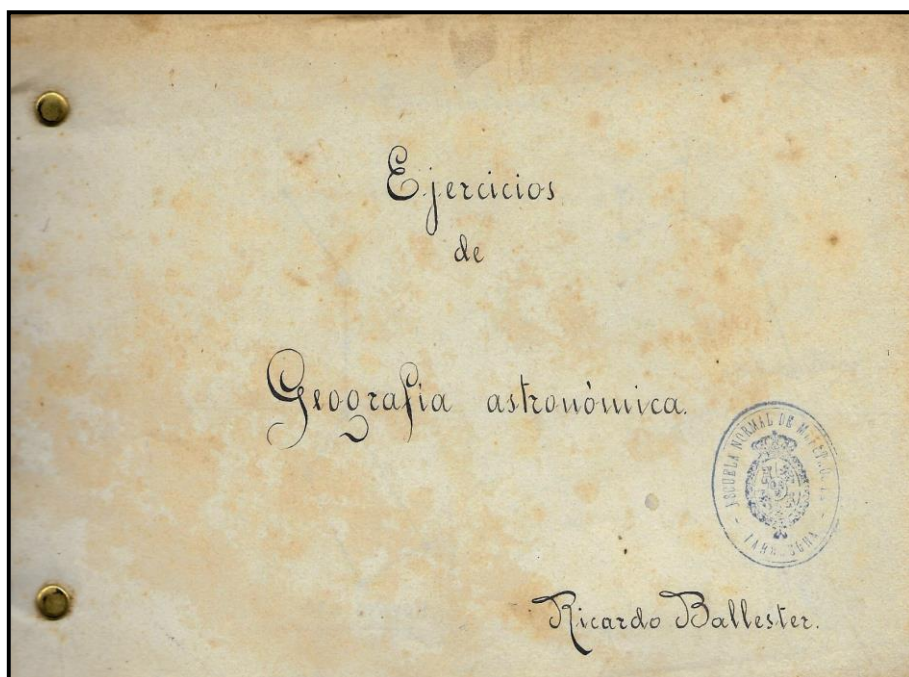 Ejercicios
de
Geografia astronómica.
ESCUELA NORMAL DE
TARRAGONA
Ricardo Ballester.